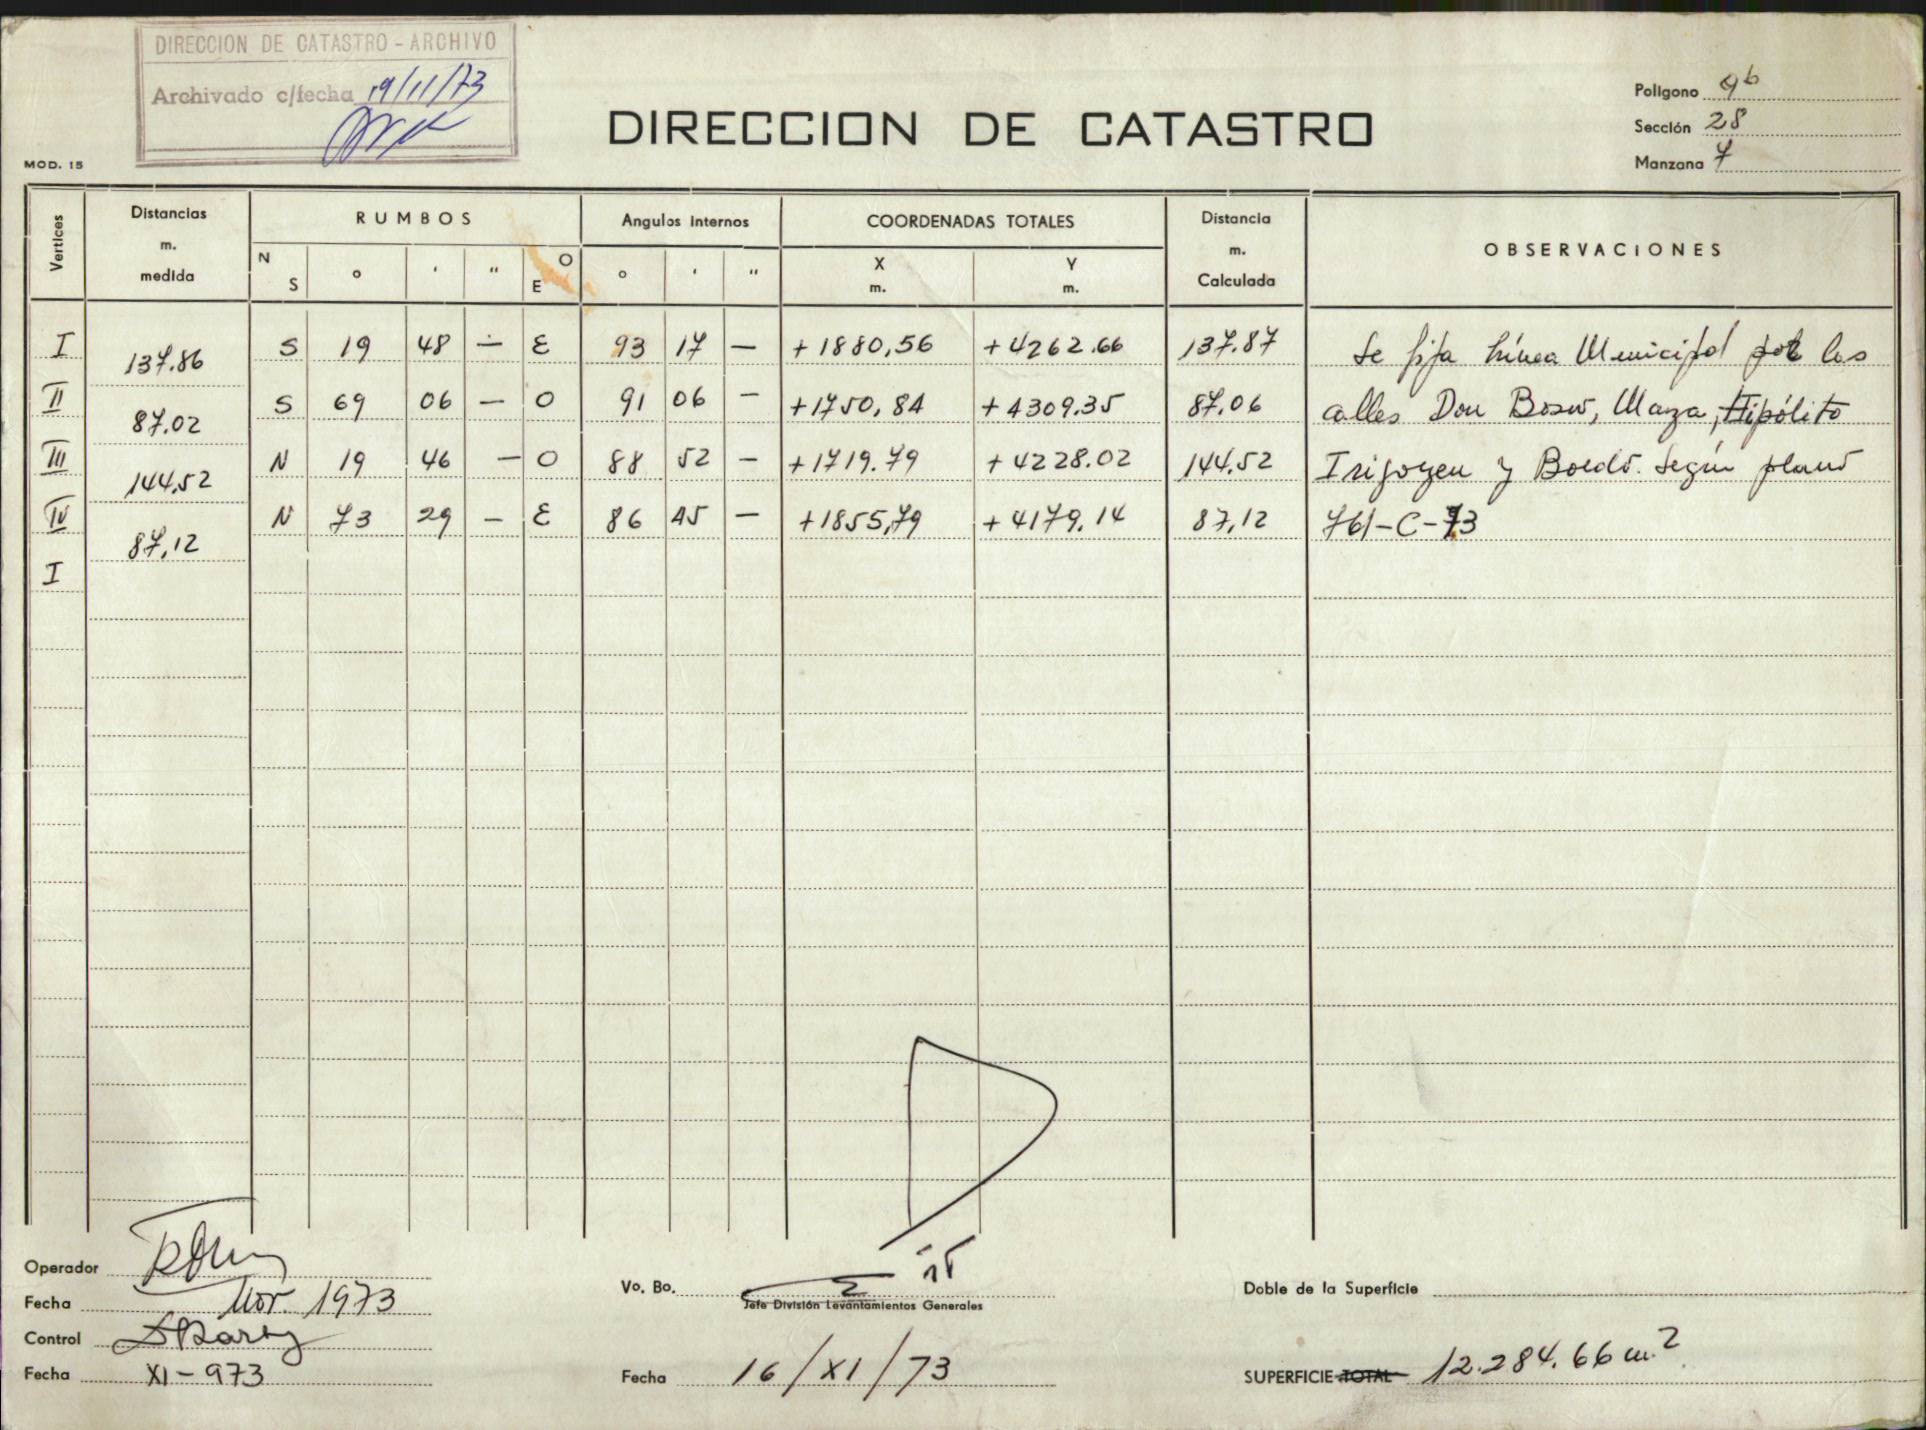 DIRECCION DE CATASTRO - ARCHIVO
Archivado c/fecha 19/11/73
MOD. 15
DIRECCION DE CATASTRO
Polígono 9b
Sección 28
Manzana 7
Vertices Distancias m. medida RUMBOS N S ° ' " O E Angulos Internos ° ' " COORDENADAS TOTALES X m. Y m. Distancia m. Calculada OBSERVACIONES
I 137.86 S 19 48 — E 93 17 — +1880,56 +4262.66 137.87 Se fija Línea Municipal por las
II 87.02 S 69 06 — O 91 06 — +1750,84 +4309.35 87.06 calles Don Bosco, Maza, Hipólito
III 144,52 N 19 46 — O 88 52 — +1719.79 +4228.02 144.52 Irigoyen y Boedo. Según plano
IV 87,12 N 73 29 — E 86 45 — +1855,79 +4179.14 87,12 761-C-73
I
Operador
Fecha Nov. 1973
Control
Fecha XI-973
Vo. Bo.
Jefe División Levantamientos Generales
Fecha 16/XI/73
Doble de la Superficie
SUPERFICIE TOTAL 12.284.66 m.2